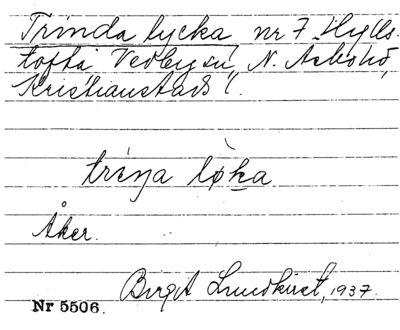 Trinda lycka nr 7 Hylls-
tofta Vedby sn, N. Åsbo hd,
Kristianstads l.
trìṇa lø̀ka
Åker.
Birgit Lundkvist, 1937.
Nr 5506.